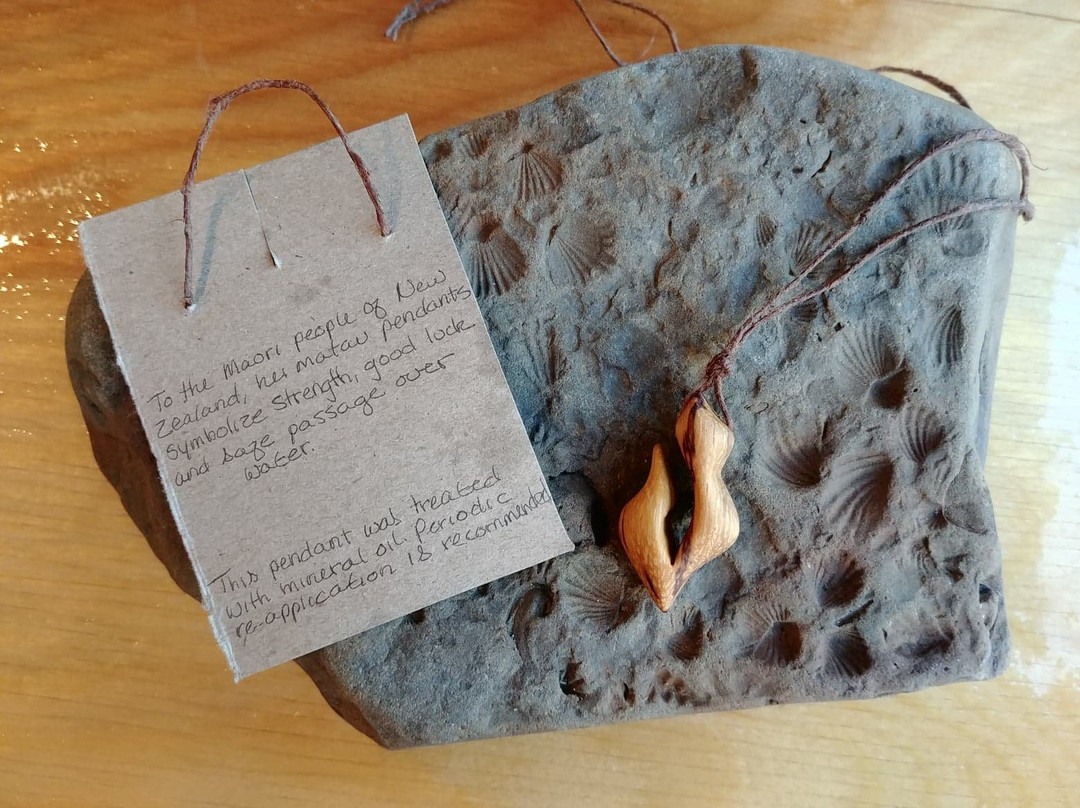 To the Maori people of New
Zealand, hei matau pendants
symbolize strength, good luck
and safe passage over
water.
This pendant was treated
with mineral oil. Periodic
re-application is recommended